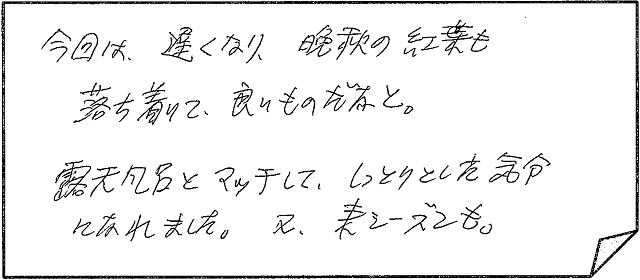 今回は、遅くなり、晩秋の紅葉も
落ち着いて、良いものだなと。
露天風呂とマッチして、しっとりとした気分
になれました。又、来シーズンも。